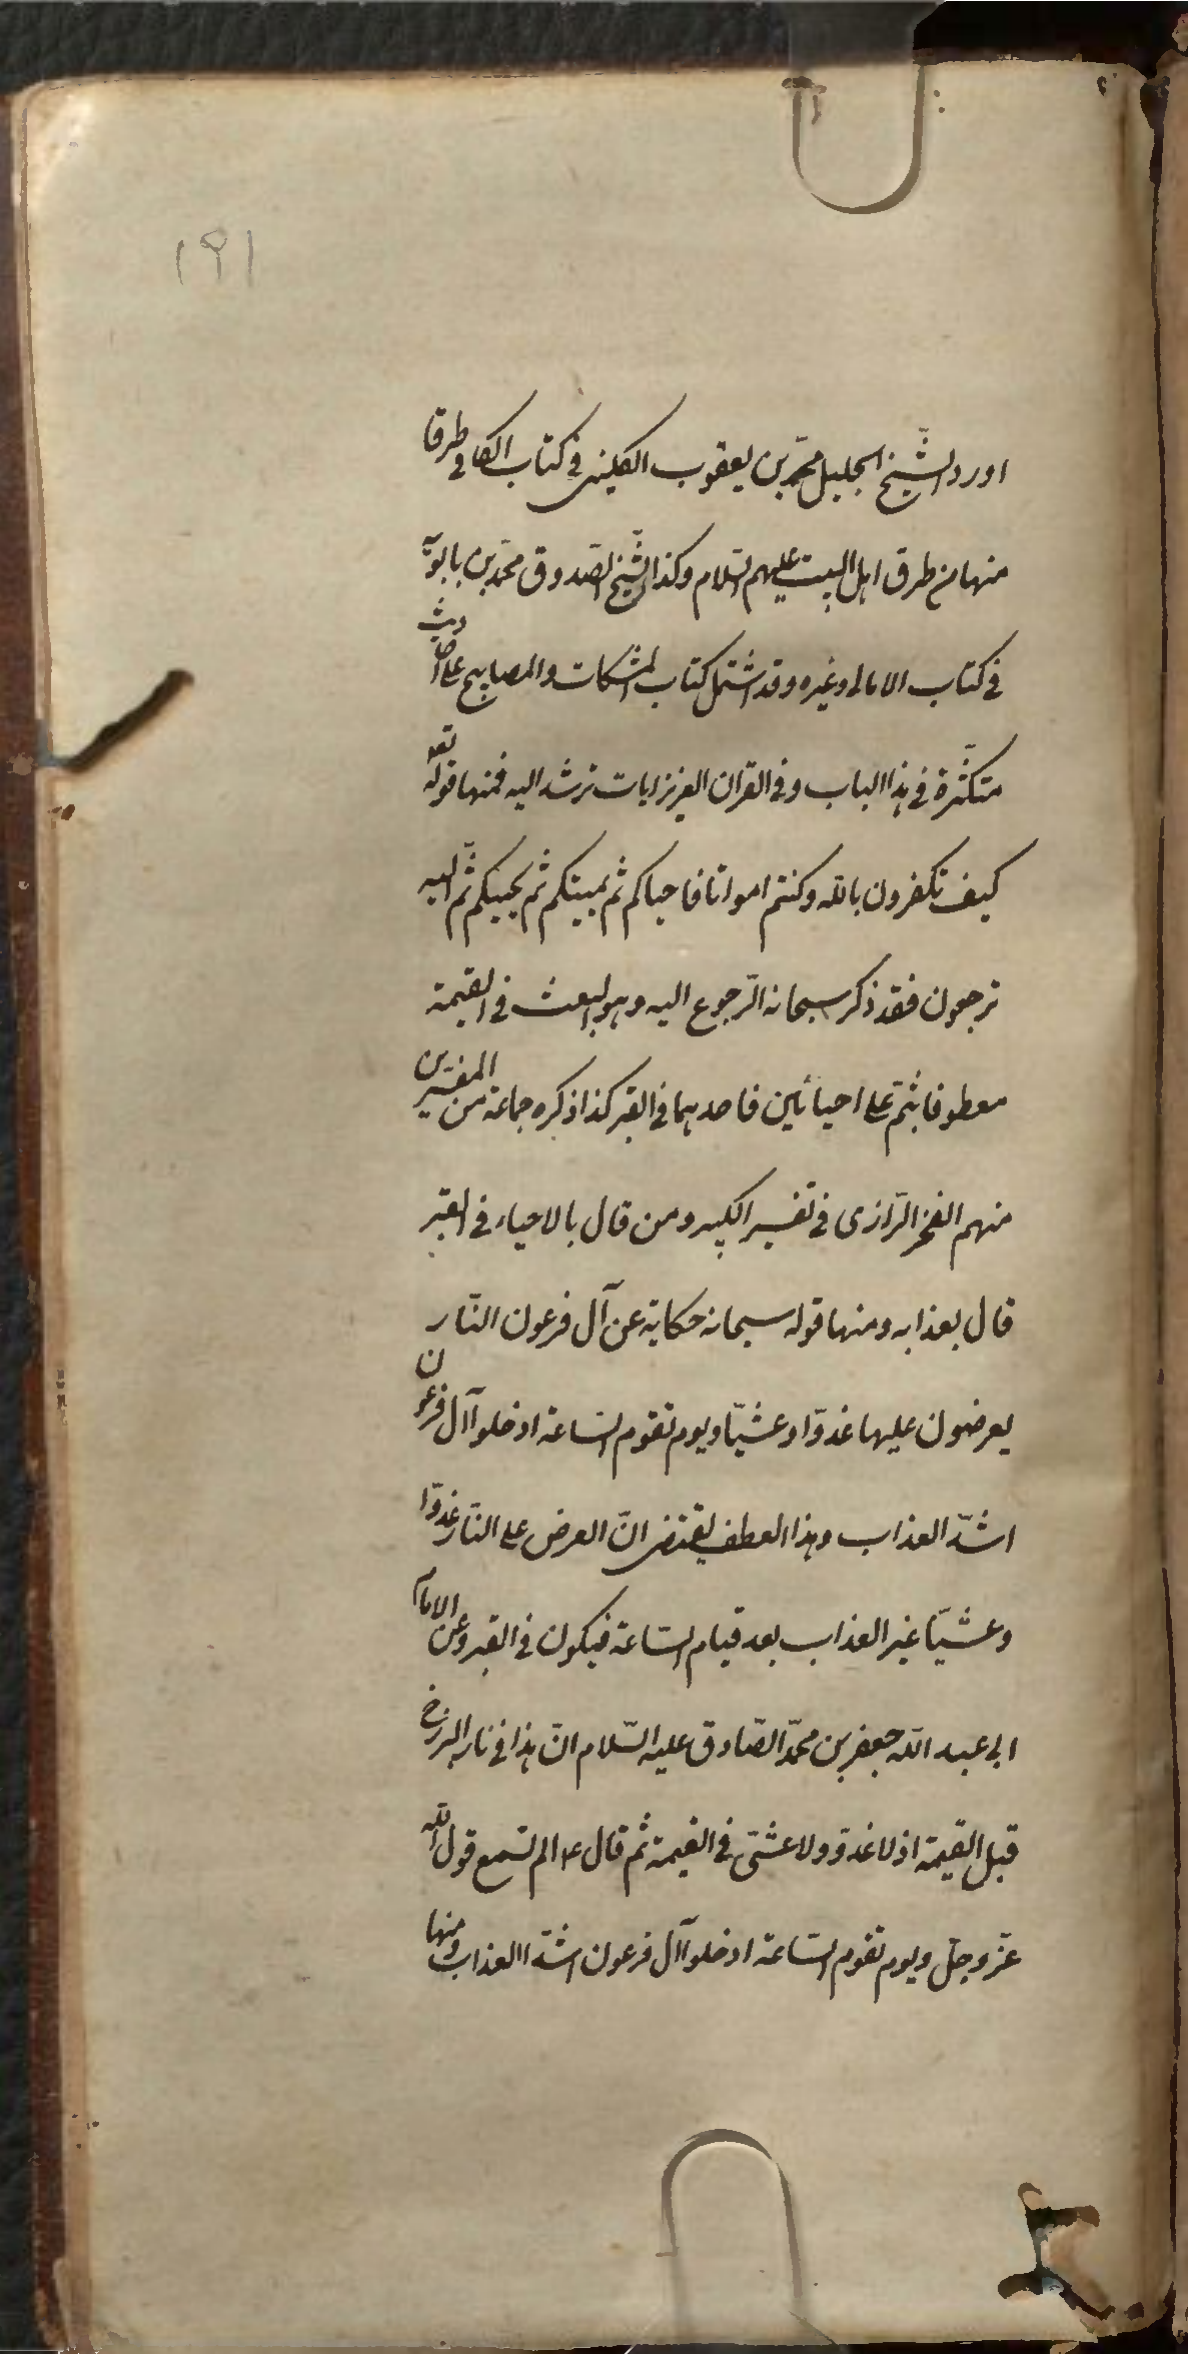 ١٩١
اورد الشّيخ الجليل محمّد بن يعقوب الكلينى فى كتاب الكافى طرقا
منها من طرق اهل البيت عليهم السّلام وكذا الشّيخ الصّدوق محمّد بن بابويه
فى كتاب الامالى وغيره وقد اشتمل كتاب المشكات والمصابيح على احاديث
متكثّرة فى هذا الباب وفى القران العزيز ايات ترشد اليه فمنها قوله تعو
كيف تكفرون بالله وكنتم امواتا فاحياكم ثم يميتكم ثم يحييكم ثم اليه
ترجعون فقد ذكر سبحانه الرّجوع اليه وهو البعث فى القيمة
معطوفا بثم على احيائين فاحدهما فى القبر كذا ذكره جماعة من المفسّرين
منهم الفخر الرّازى فى تفسير الكبير ومن قال بالاحياء فى القبر
قال بعذابه ومنها قوله سبحانه حكاية عن آل فرعون النّار
يعرضون عليها غدوّا وعشيّا ويوم تقوم السّاعة ادخلوا آل فرعون
اشدّ العذاب وهذا العطف يقتضى انّ العرض على النّار غدوّا
وعشيّا غير العذاب بعد قيام السّاعة فيكون فى القبر وعن الامام
ابى عبد الله جعفر بن محمّد الصّادق عليه السّلام انّ هذا فى نار البرزخ
قبل القيمة اذ لا غدوّ ولا عشىّ فى القيمة ثم قال ع الم تسمع قول الله
عزّ وجلّ ويوم تقوم السّاعة ادخلوا آل فرعون اشدّ العذاب ومنها